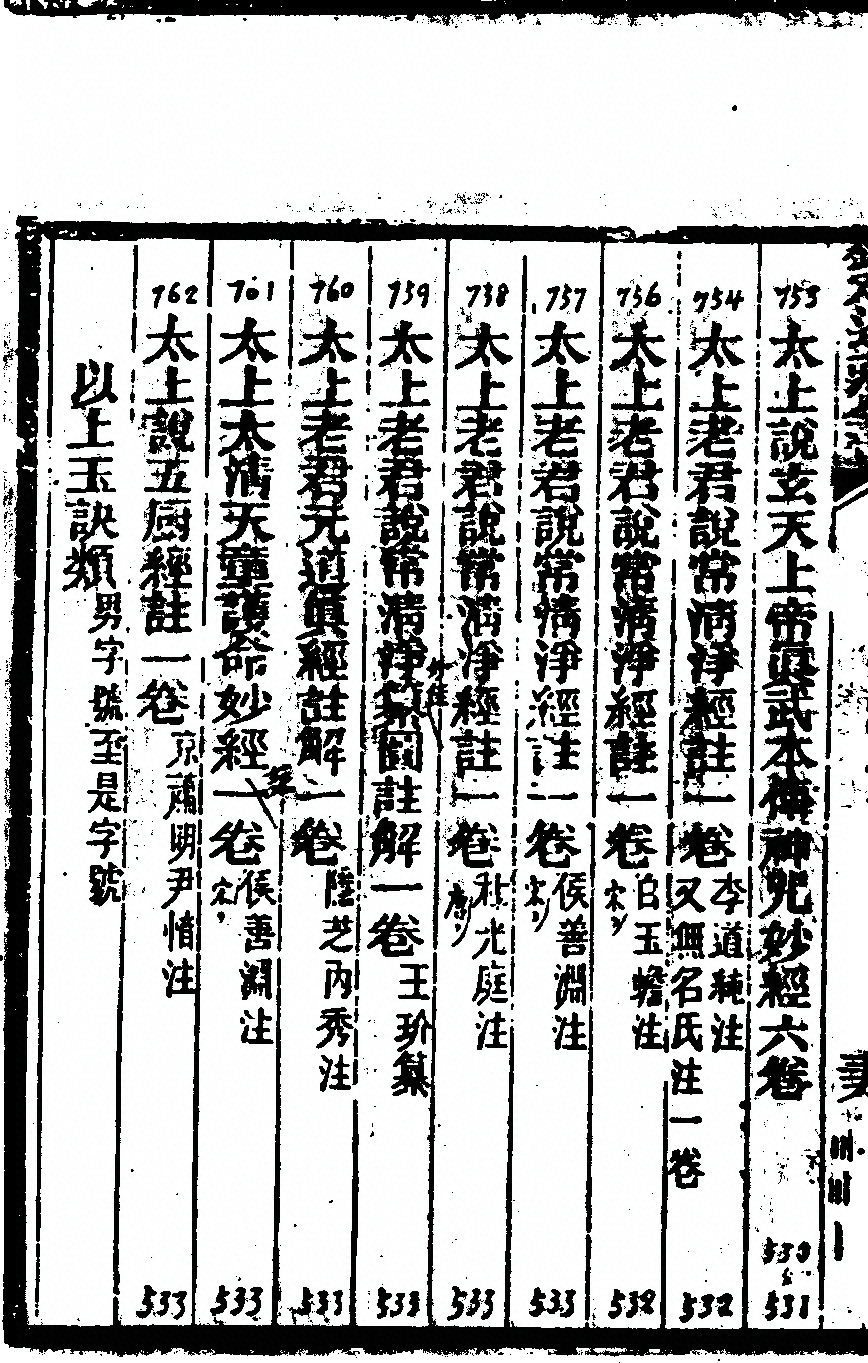 753 太上說玄天上帝眞武本傳神呪妙經六卷 530 531
754 太上老君說常清淨經註一卷 李道純注 又無名氏注一卷 532
756 太上老君說常清淨經註一卷 白玉蟾注 宋 532
757 太上老君說常清淨經註一卷 侯善淵注 宋 533
758 太上老君說常清淨經註一卷 杜光庭注 唐 533
759 太上老君說常清淨纂圖註解一卷 王玠纂 533
760 太上老君元道眞經註解一卷 隱芝內秀注 533
761 太上太清天童護命妙經一卷 侯善淵注 宋 533
762 太上說五廚經註一卷 京肅明尹愔注 533
以上玉訣類 男字號至是字號